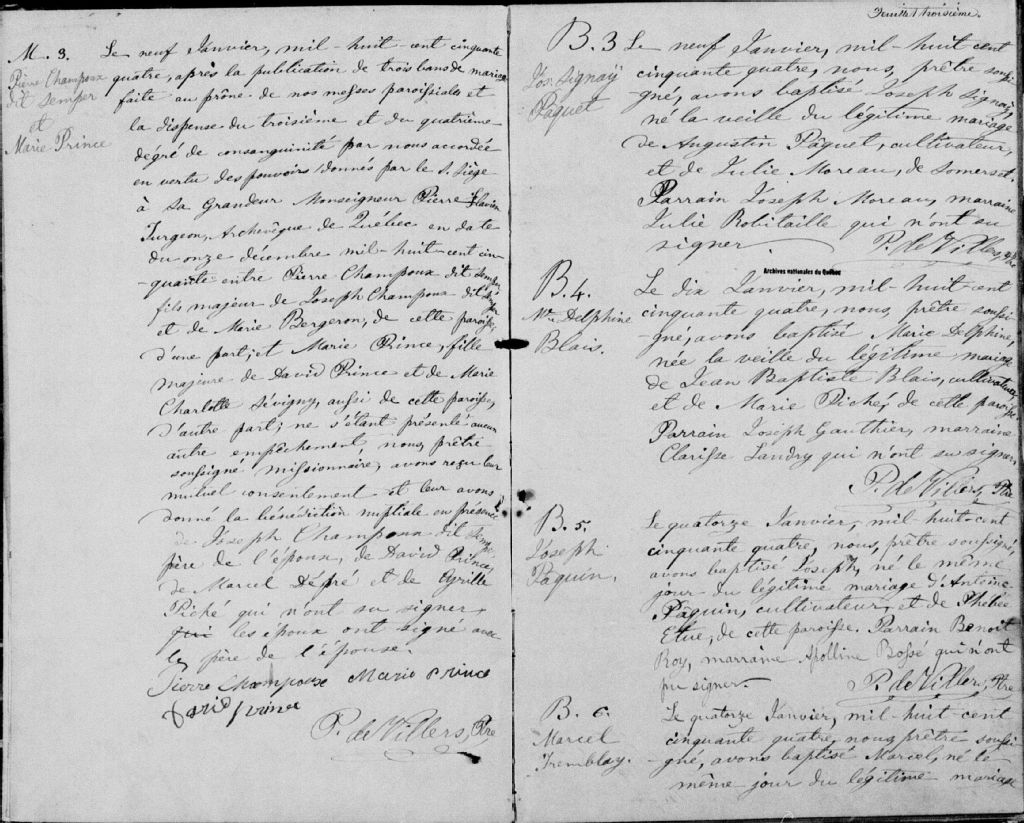 M. 3.
Pierre Champoux
dit Semper
et
Marie Prince
Le neuf Janvier, mil-huit-cent cinquante
quatre, après la publication de trois bans de mariage
faite au prône de nos messes paroissiales et
la dispense du troisième et du quatrième
dégré de consanguinité par nous accordée
en vertu des pouvoirs donnés par le S. Siège
à Sa Grandeur Monseigneur Pierre Flavien
Turgeon, Archevêque de Québec en date
du onze décembre mil-huit-cent cin-
quante entre Pierre Champoux dit Semper
fils majeur de Joseph Champoux dit Semper
et de Marie Bergeron, de cette paroisse,
d'une part; et Marie Prince, fille
majeure de David Prince et de Marie
Charlotte Sévigny, aussi de cette paroisse,
d'autre part; ne s'étant présenté aucun
autre empêchement, nous, prêtre
soussigné missionnaire, avons reçu leur
mutuel consentement et leur avons
donné la bénédiction nuptiale en présence
de Joseph Champoux dit Semper
père de l'époux, de David Prince,
de Marcel Dépré et de Cyrille
Piché qui n'ont su signer,
les époux ont signé avec
le père de l'épouse.
Pierre Champoux Marie Prince
David Prince
P. de Villers, Ptre
Feuillet troisième.
B. 3
Jos. Signaÿ
Paquet
Le neuf Janvier, mil-huit cent
cinquante quatre, nous, prêtre soussi-
gné, avons baptisé Joseph Signaÿ,
né la veille du légitime mariage
de Augustin Paquet, cultivateur,
et de Julie Moreau, de Somerset.
Parrain Joseph Moreau, marraine
Julie Robitaille qui n'ont su
signer
P. de Villers, Ptre
Archives nationales du Québec
B. 4.
Mie Delphine
Blais.
Le dix Janvier, mil-huit-cent
cinquante quatre, nous, prêtre soussi-
gné, avons baptisé Marie Delphine,
née la veille du légitime mariage
de Jean Baptiste Blais, cultivateur,
et de Marie Piché, de cette paroisse.
Parrain Joseph Gauthier, marraine
Clarisse Landry qui n'ont su signer.
P. de Villers, Ptre
B. 5.
Joseph
Paquin.
Le quatorze Janvier, mil-huit-cent
cinquante quatre, nous, prêtre soussigné,
avons baptisé Joseph, né le même
jour du légitime mariage d'Antoine
Paquin, cultivateur, et de Phebée
Etue, de cette paroisse. Parrain Benoit
Roy, marraine Apolline Bossé qui n'ont
pu signer.
P. de Villers, Ptre
B. 6.
Marcel
Tremblay.
Le quatorze Janvier, mil-huit cent
cinquante quatre, nous, prêtre soussi-
gné, avons baptisé Marcel, né le
même jour du légitime mariage